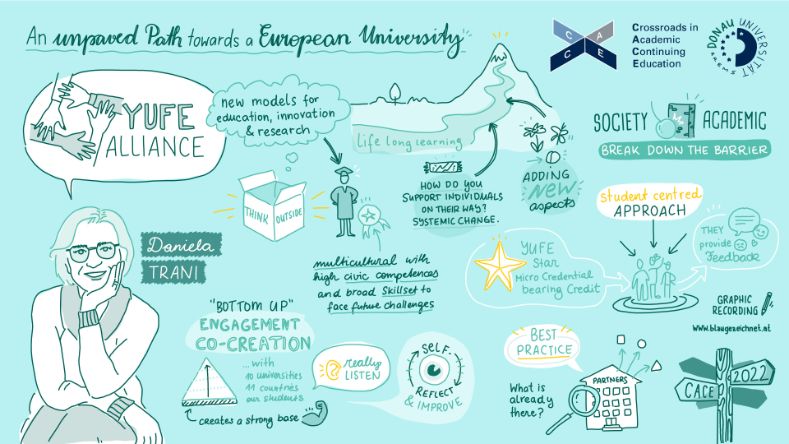 An unpaved Path towards a European University
C A C E
Crossroads in
Academic
Continuing
Education
DONAU UNIVERSITÄT KREMS
YUFE
ALLIANCE
new models for
education, innovation
& research
Life long learning
SOCIETY
ACADEMIC
BREAK DOWN THE BARRIER
THINK
OUTSIDE
HOW DO YOU
SUPPORT INDIVIDUALS
ON THEIR WAY?
SYSTEMIC CHANGE.
ADDING
new
aspects
student centred
APPROACH
THEY
provide
Feedback
Daniela
TRANI
multicultural with
high civic competences
and broad Skillset to
face future challenges
YUFE
Star
Micro Credential
bearing Credit
GRAPHIC
RECORDING
www.blaugezeichnet.at
"BOTTOM UP"
ENGAGEMENT
CO-CREATION
... with
10 universities
11 countries
our students
creates a strong base
really
LISTEN
SELF-
REFLECT
& IMPROVE
BEST
PRACTICE
What is
already
there?
PARTNERS
CACE
2022